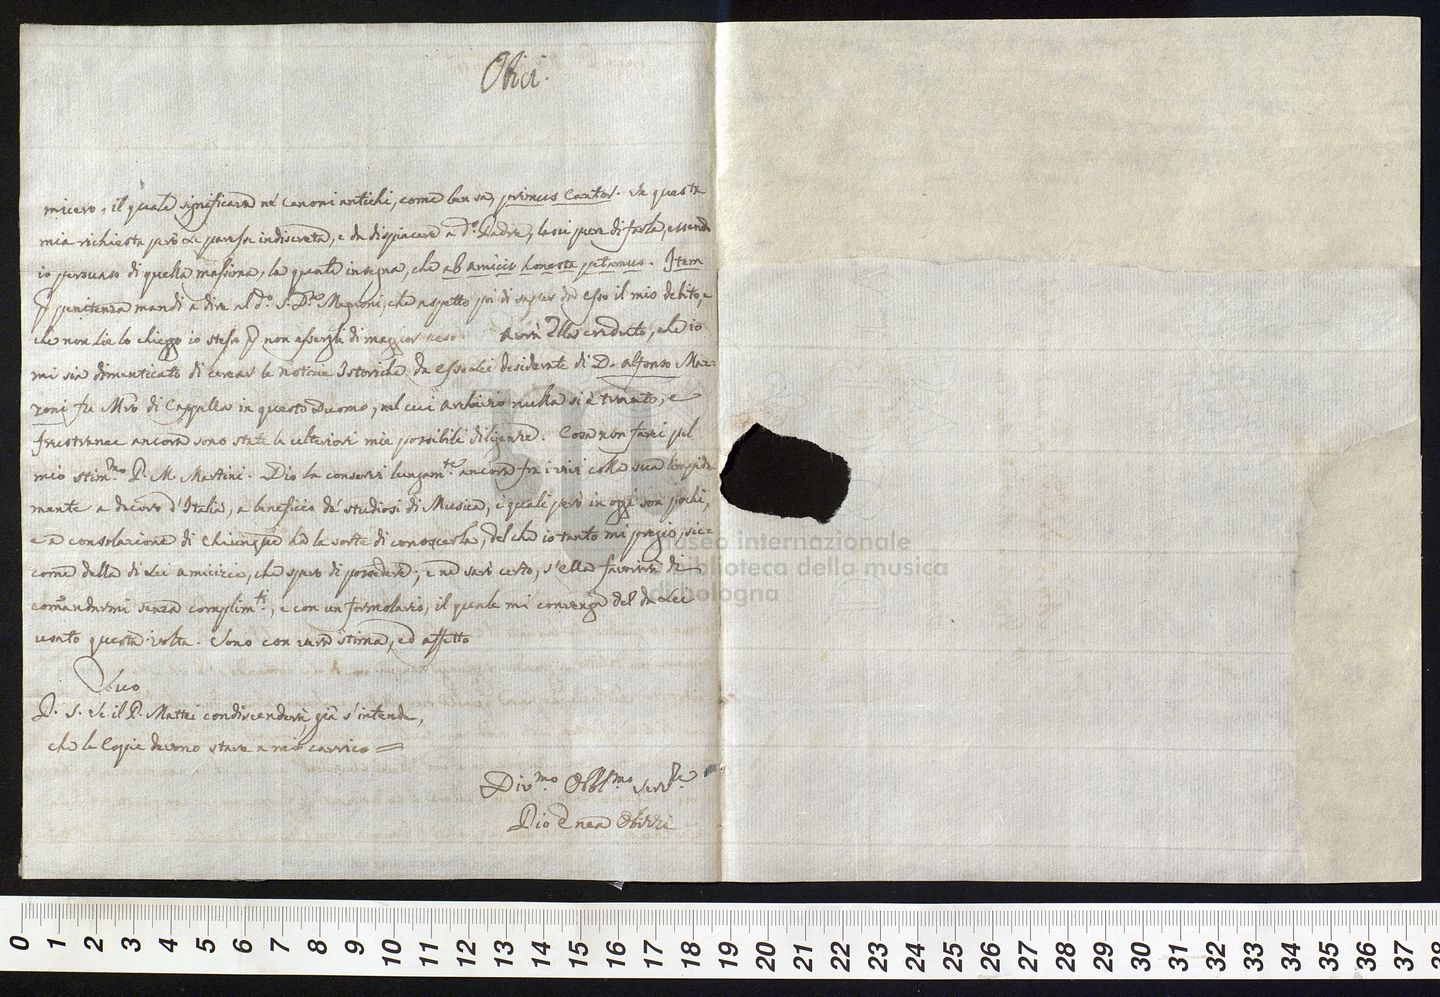 Obici.
micero, il quale significava ne' Canoni antichi, come ben sa, primus Cantor. Se questa
mia richiesta però Le paresse indiscreta, e da dispiacere a d.o Padre, lasci pure di farla, essendo
io persuaso di quella massima, la quale insegna, che ab amicis honesta petimus. Item
penitenza mandi a dire al d.o S.r D.n Magnoni, che aspetto poi di saper da esso il mio debito, e
che non Lie lo chieggo io stesso non esserle di maggior peso. Avrà Ella creduto, che io
mi sia dimenticato di cercar le notizie Istoriche da essoLei desiderate di D. Alfonso Maz=
zoni fu M.ro di Cappella in questo Duomo, nel cui Archivio nulla si è trovato, e
frustranee ancora sono state le ulteriori mie possibili diligenze. Cosa non farei pel
mio stim.mo P. M. Martini. Dio la conservi lungam.te ancora fra i vivi colla sua limpida
mente a decoro d'Italia, a beneficio de' studiosi di Musica, i quali però in oggi son pochi,
e a consolazione di chiunque ha la sorte di conoscerla, del che io tanto mi pregio, sic=
come della di Lei amicizia, che spero di possedere; e ne sarò certo, s'ella favorirà di
comandarmi senza complim.ti, e con un formolario, il quale mi convenga del da Lei
usato questa volta. Sono con vera stima, ed affetto
P. S. Se il P. Mattei condiscenderà, già s'intende,
che le Copie devono stare a mio carico =
Div.mo Obbl.mo Serv.re
Pio Enea Obizzi
museo internazionale
e biblioteca della musica
di bologna
0 1 2 3 4 5 6 7 8 9 10 11 12 13 14 15 16 17 18 19 20 21 22 23 24 25 26 27 28 29 30 31 32 33 34 35 36 37 38